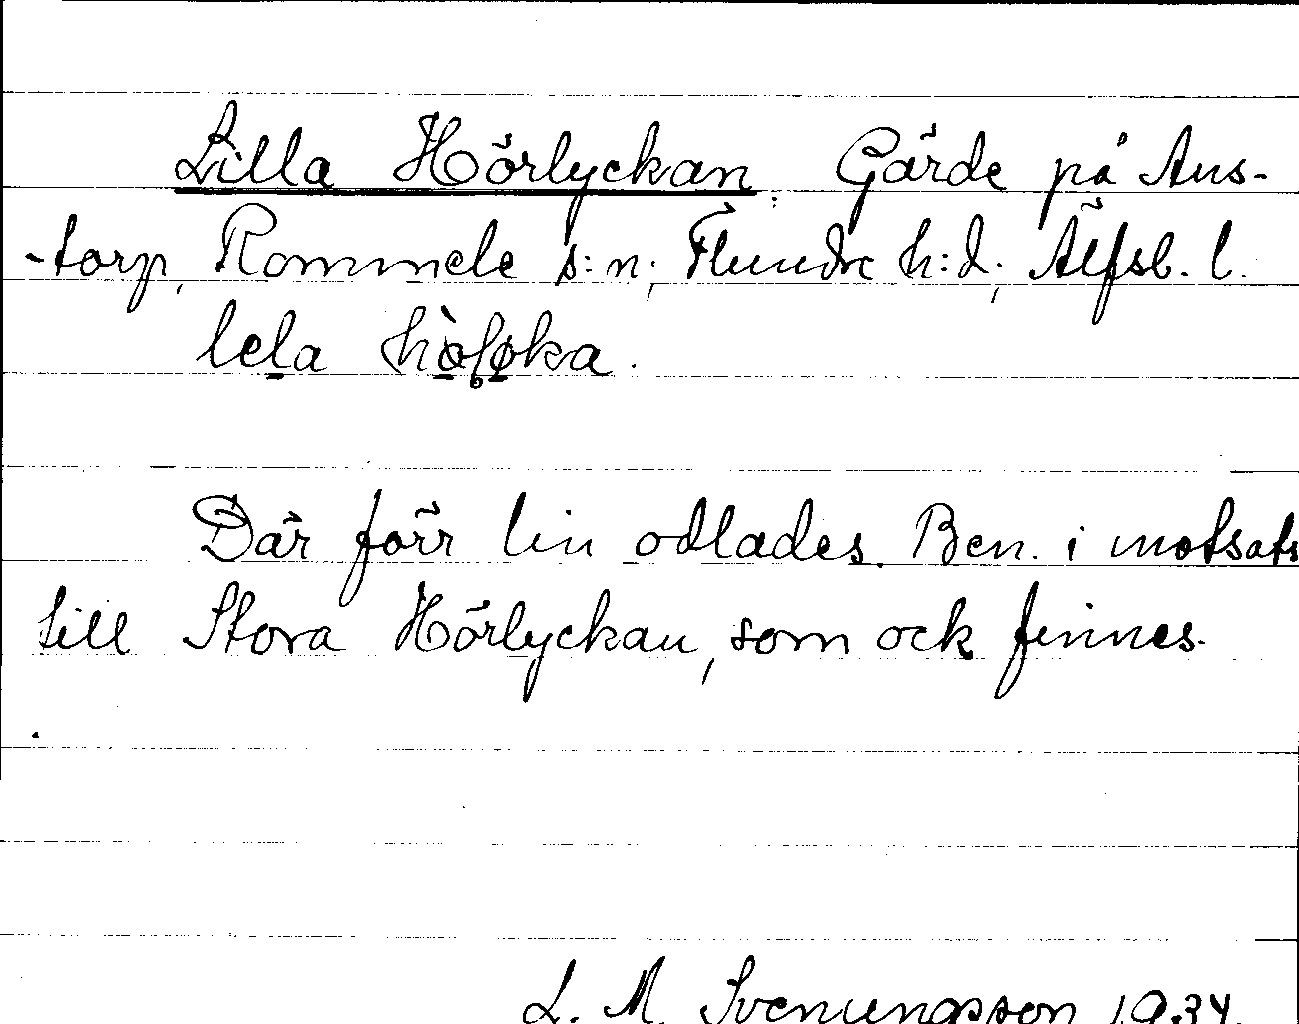 Lilla Hörlyckan. Gärde på Aus-
-torp, Rommele s:n; Flundre h:d; Älfsb. l.
lela
Där förr lin odlades. Ben. i motsats
till Stora Hörlyckan, som ock finnes.
L. M. Svenungsson 1934.